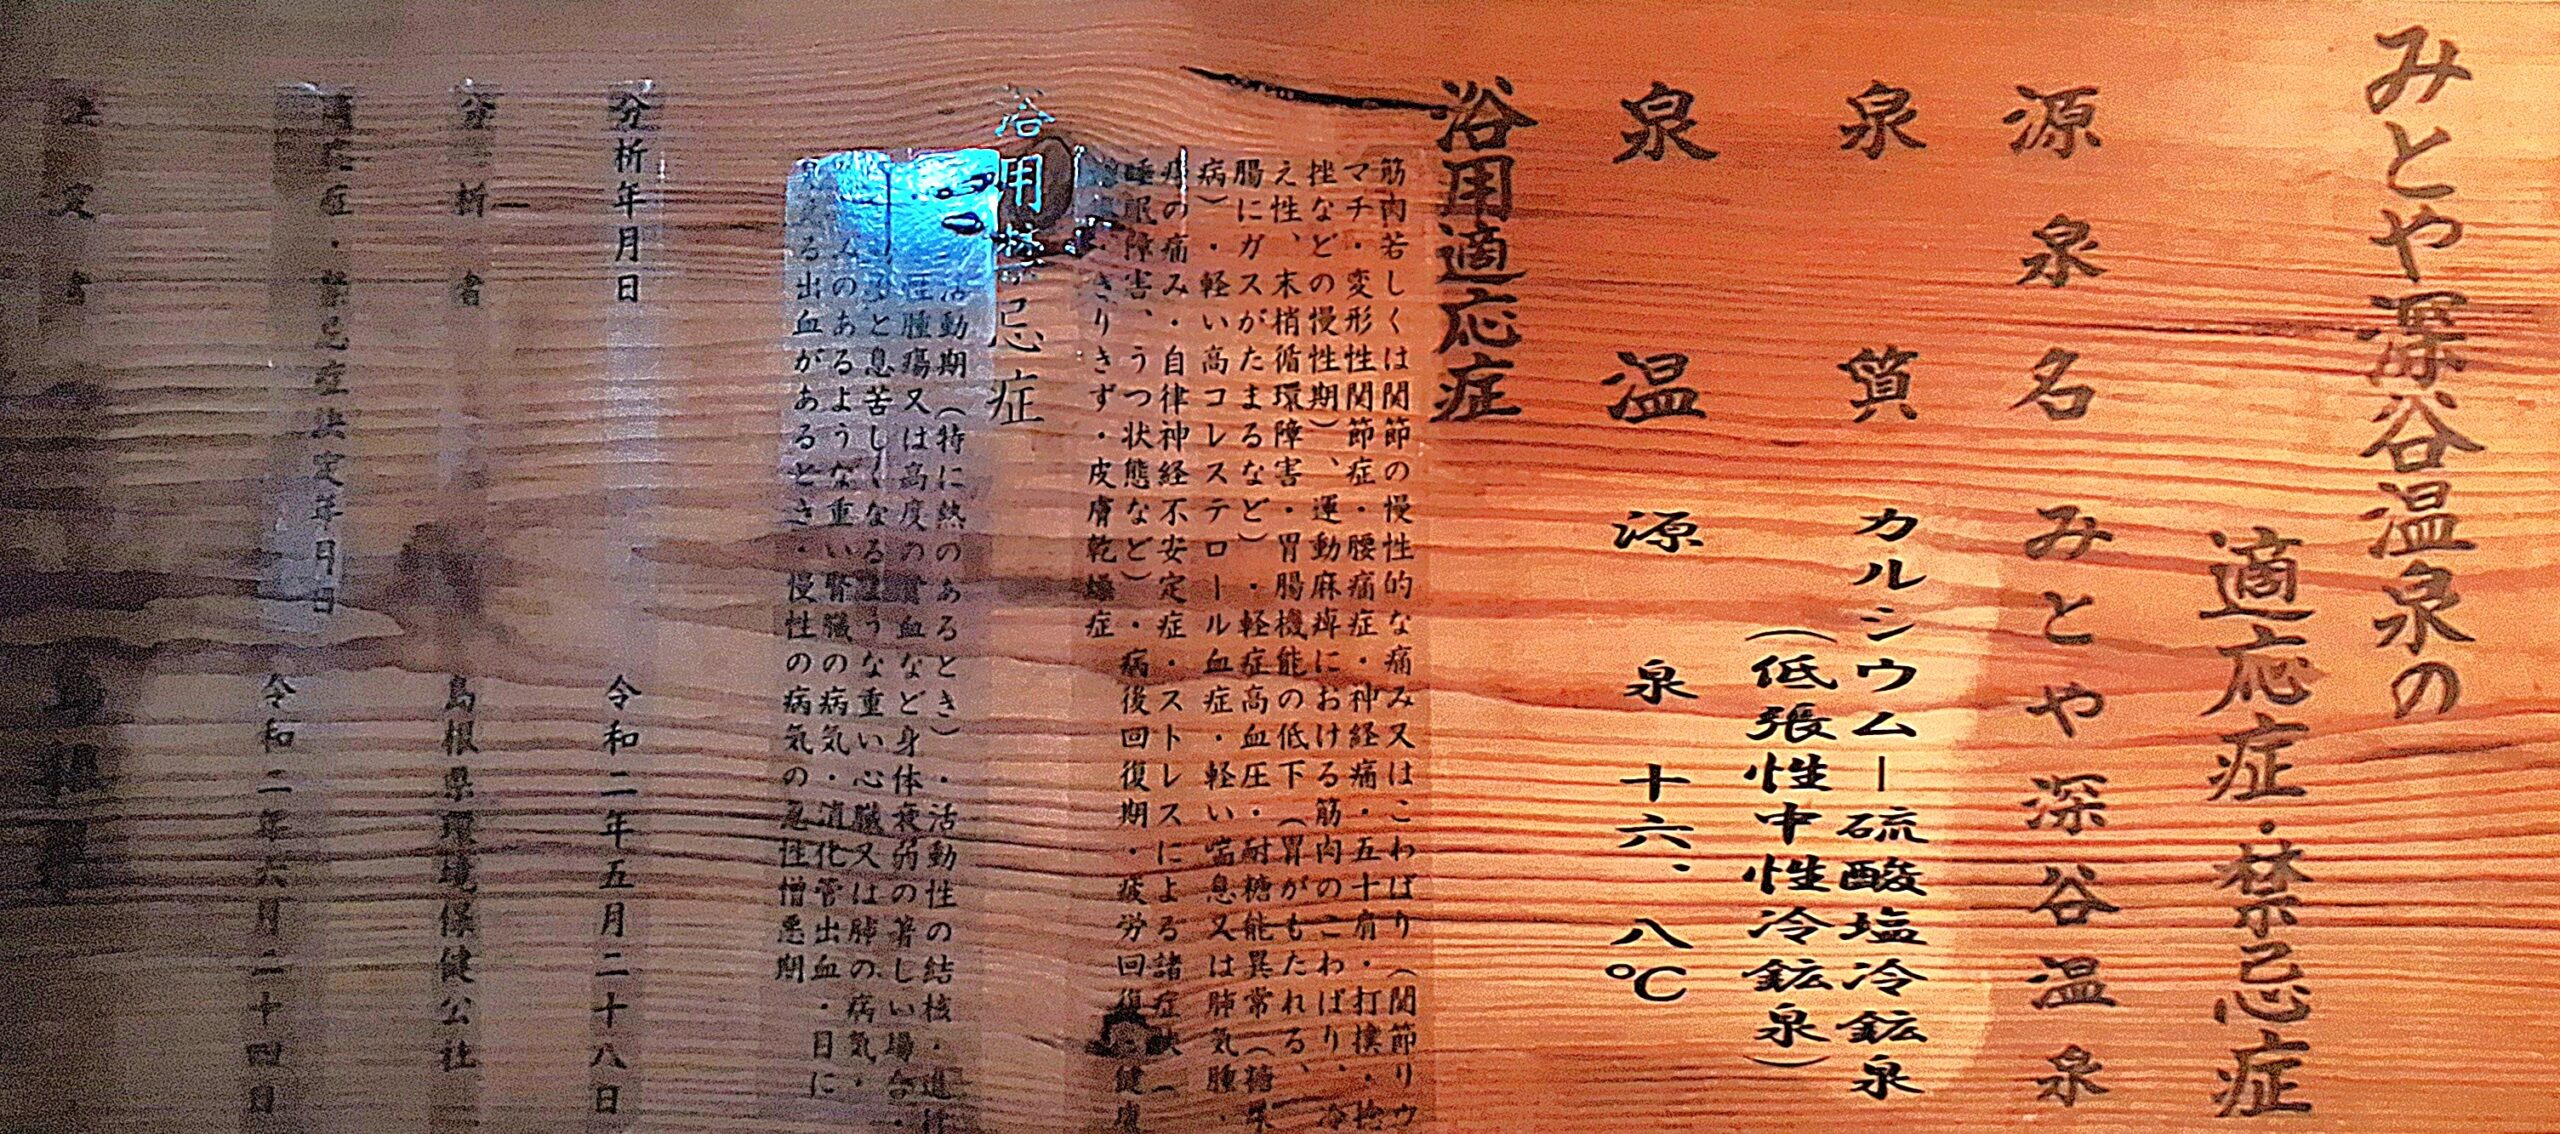 みとや深谷温泉の
適応症・禁忌症
源泉名 みとや深谷温泉
泉質 カルシウム－硫酸塩冷鉱泉
（低張性中性冷鉱泉）
泉温 源泉 十六、八℃
浴用適応症
筋肉若しくは関節の慢性的な痛み又はこわばり（関節リウ
マチ・変形性関節症・腰痛症・神経痛・五十肩・打撲・捻
挫などの慢性期）、運動麻痺における筋肉のこわばり、冷
え性、末梢循環障害・胃腸機能の低下（胃がもたれる、
腸にガスがたまるなど）・軽症高血圧・耐糖能異常（糖尿
病）・軽い高コレステロール血症・軽い喘息又は肺気腫・
の痛み・自律神経不安定症・ストレスによる諸症状（
睡眠障害、うつ状態など）・病後回復期・疲労回復
きりきず・皮膚乾燥症
浴用禁忌症
活動期（特に熱のあるとき）・活動性の結核・進行
性腫瘍又は高度の貧血など身体衰弱の著しい場合・
と息苦しくなるような重い心臓又は肺の病気・
のあるような重い腎臓の病気・消化管出血・目に
る出血があるとき・慢性の病気の急性憎悪期
分析年月日 令和二年五月二十八日
分析者 島根県環境保健公社
禁忌症決定年月日 令和二年六月二十四日